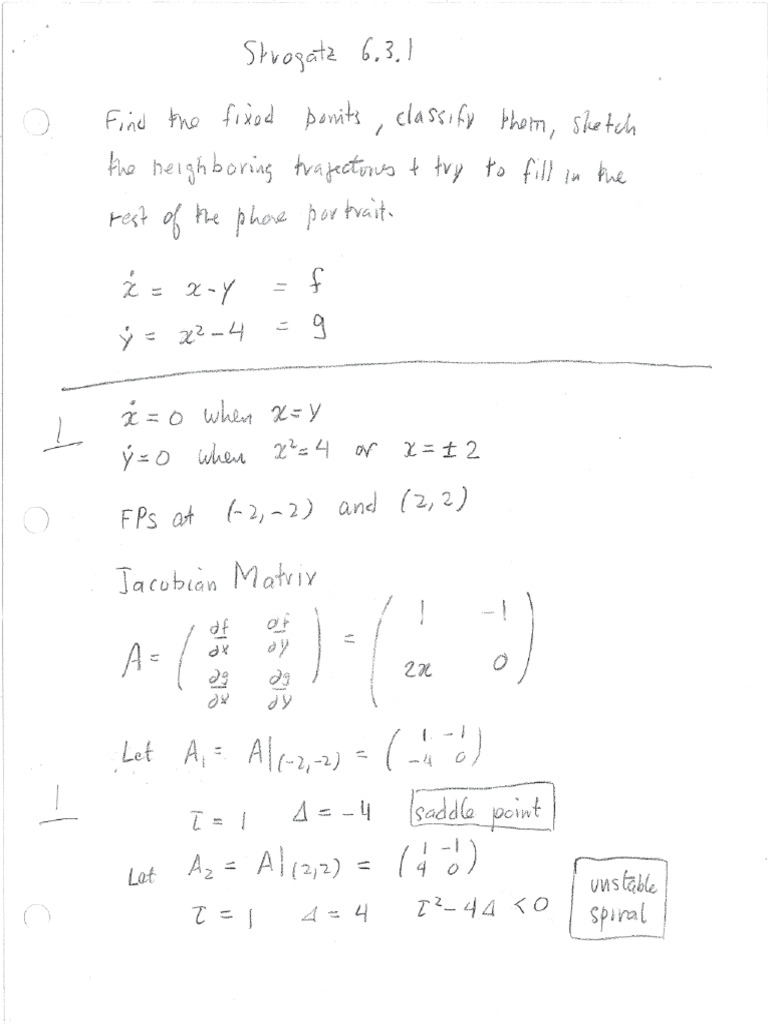 Strogatz 6.3.1
Find the fixed points, classify them, sketch
the neighboring trajectories + try to fill in the
rest of the phase portrait.
ẋ = x-y = f
ẏ = x²-4 = g
1
ẋ = 0 when x=y
ẏ=0 when x²=4 or x=±2
FPs at (-2,-2) and (2,2)
Jacobian Matrix
A = ( ∂f/∂x ∂f/∂y ; ∂g/∂x ∂g/∂y ) = ( 1 -1 ; 2x 0 )
Let A₁ = A|(-2,-2) = ( 1 -1 ; -4 0 )
1
τ = 1 Δ = -4 saddle point
Let A₂ = A|(2,2) = ( 1 -1 ; 4 0 )
τ = 1 Δ = 4 τ²-4Δ <0 unstable spiral